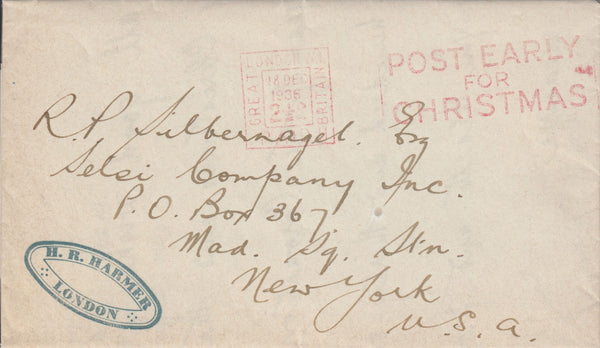 GREAT LONDON BRITAIN
18 DEC
1936
POST EARLY
FOR
CHRISTMAS
R.P. Silbernagel. Esq
Selsi Company Inc.
P.O. Box 367
Mad. Sq. Stn.
New York
U.S.A.
H. R. HARMER
LONDON